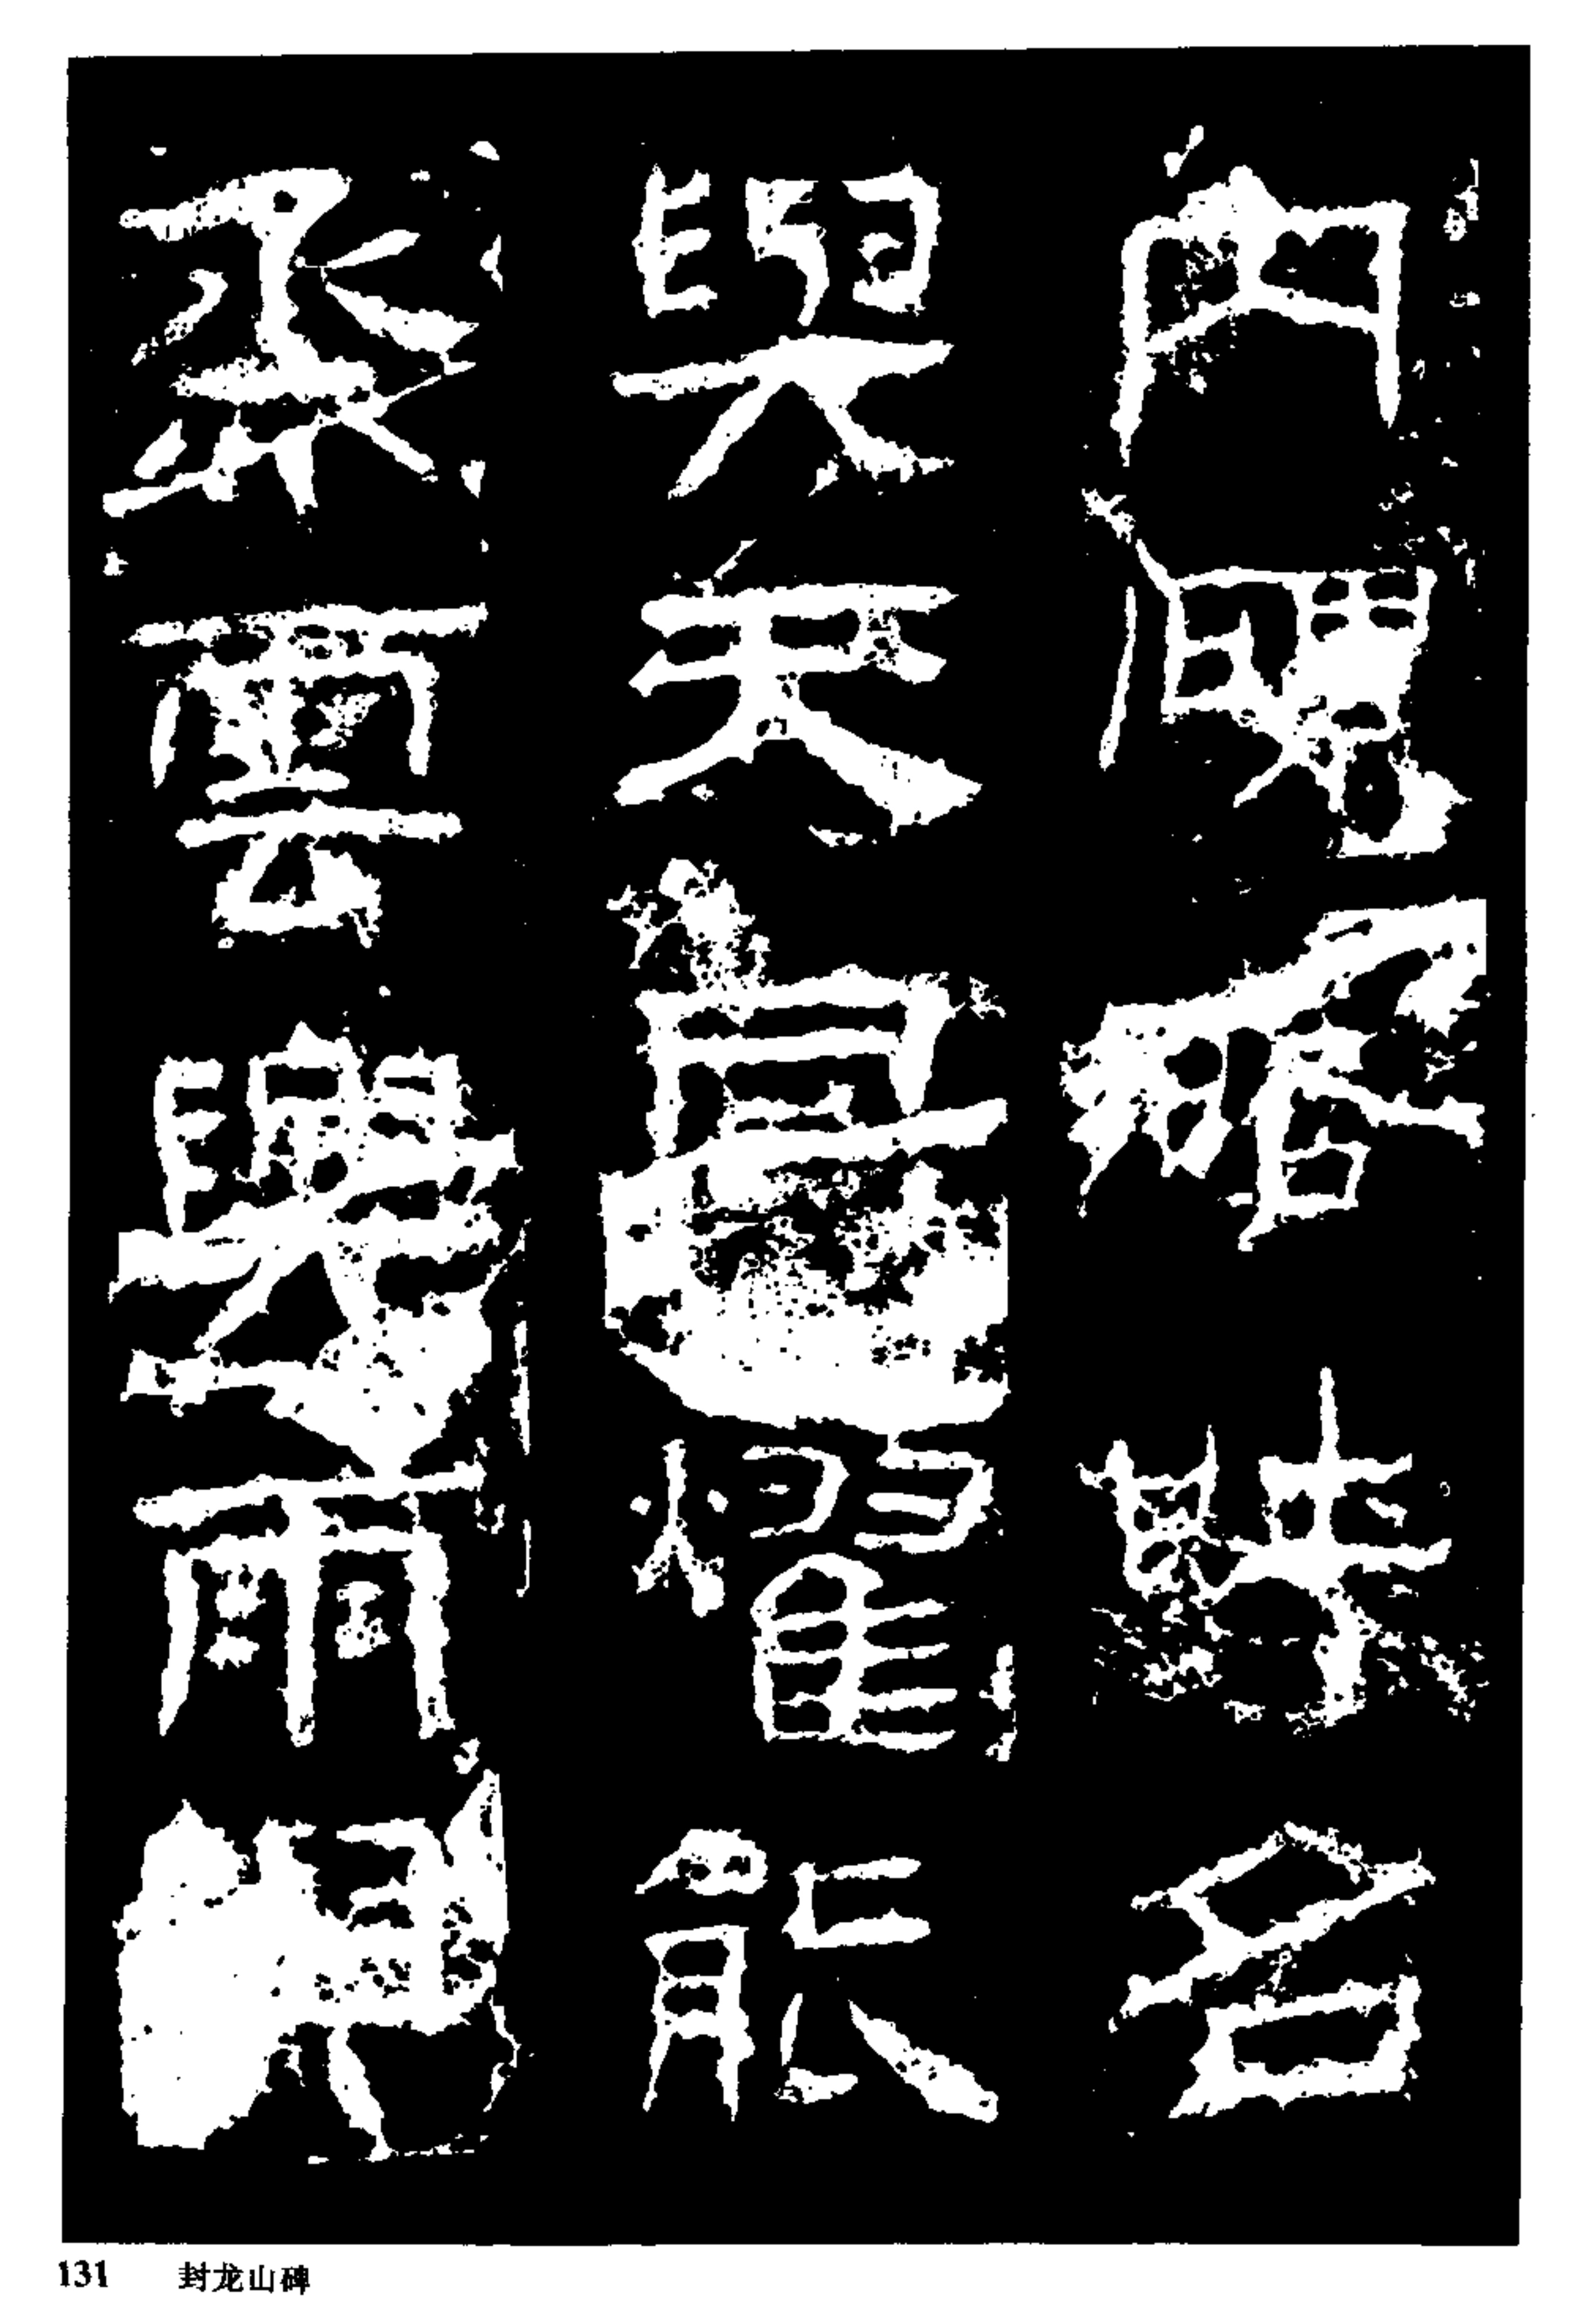 內磥硌吐名
與天同燿能
烝雲興雨與
131 封龙山碑